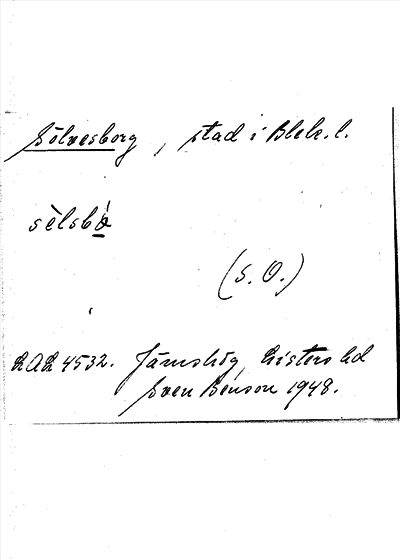 Sölvesborg, stad i Blek. l.
sèlsbȯ́
(S. O.)
LAL 4532. Jämshög, Listers hd
Sven Benson 1948.